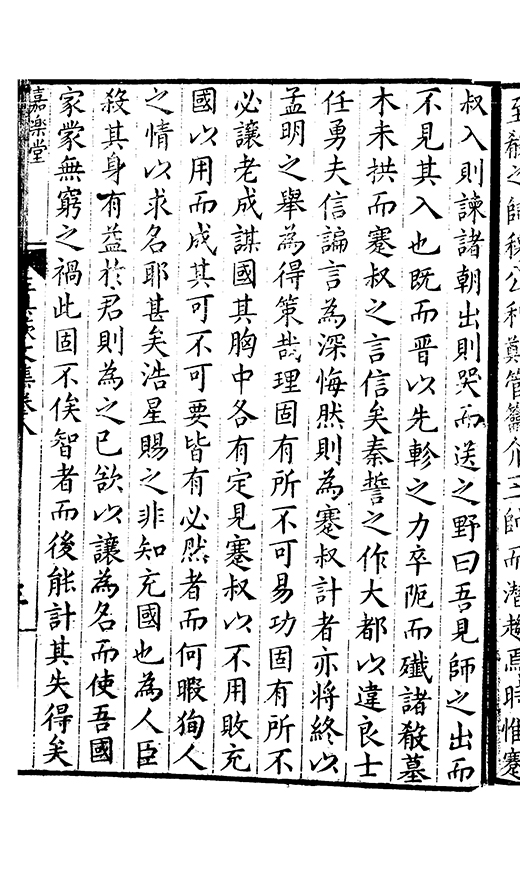 至殽之師穆公利鄭管籥介三帥而潛趍焉時惟蹇
叔入則諫諸朝出則哭而送之野曰吾見師之出而
不見其入也既而晋以先軫之力卒阨而殲諸殽墓
木未拱而蹇叔之言信矣秦誓之作大都以違良士
任勇夫信諞言為深悔然則為蹇叔計者亦将終以
孟明之舉為得策哉理固有所不可易功固有所不
必讓老成謀國其胸中各有定見蹇叔以不用敗充
國以用而成其可不可要皆有必然者而何暇狥人
之情以求名耶甚矣浩星賜之非知充國也為人臣
殺其身有益於君則為之已欲以讓為名而使吾國
家蒙無窮之禍此固不俟智者而後能計其失得矣
嘉楽堂
文集卷八
三